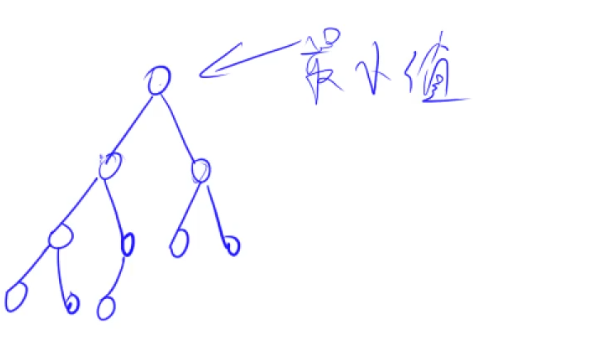 最小值